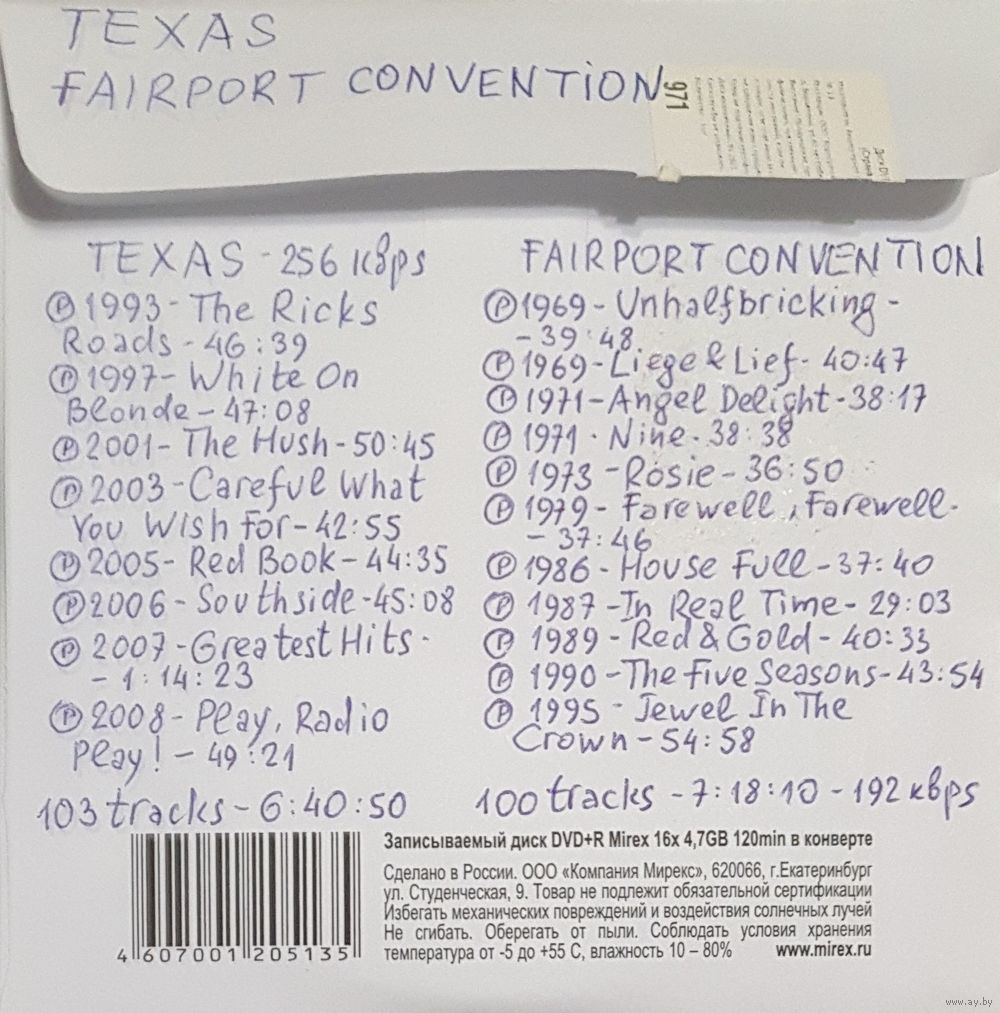 TEXAS
FAIRPORT CONVENTION
971
TEXAS - 256 кбps
Ⓟ 1993 - The Ricks
Roads - 46:39
Ⓟ 1997 - White On
Blonde - 47:08
Ⓟ 2001 - The Hush - 50:45
Ⓟ 2003 - Careful What
You Wish For - 42:55
Ⓟ 2005 - Red Book - 44:35
Ⓟ 2006 - Southside - 45:08
Ⓟ 2007 - Greatest Hits -
- 1:14:23
Ⓟ 2008 - Play, Radio
Play! - 49:21
103 tracks - 6:40:50
FAIRPORT CONVENTION
Ⓟ 1969 - Unhalfbricking -
- 39:48
Ⓟ 1969 - Liege & Lief - 40:47
Ⓟ 1971 - Angel Delight - 38:17
Ⓟ 1971 - Nine - 38:38
Ⓟ 1973 - Rosie - 36:50
Ⓟ 1979 - Farewell, Farewell -
- 37:46
Ⓟ 1986 - House Full - 37:40
Ⓟ 1987 - In Real Time - 29:03
Ⓟ 1989 - Red & Gold - 40:33
Ⓟ 1990 - The Five Seasons - 43:54
Ⓟ 1995 - Jewel In The
Crown - 54:58
100 tracks - 7:18:10 - 192 кбps
4 607001 205135
Записываемый диск DVD+R Mirex 16x 4,7GB 120min в конверте
Сделано в России. ООО «Компания Мирекс», 620066, г.Екатеринбург
ул. Студенческая, 9. Товар не подлежит обязательной сертификации
Избегать механических повреждений и воздействия солнечных лучей
Не сгибать. Оберегать от пыли. Соблюдать условия хранения
температура от -5 до +55 С, влажность 10 – 80% www.mirex.ru
www.ay.by